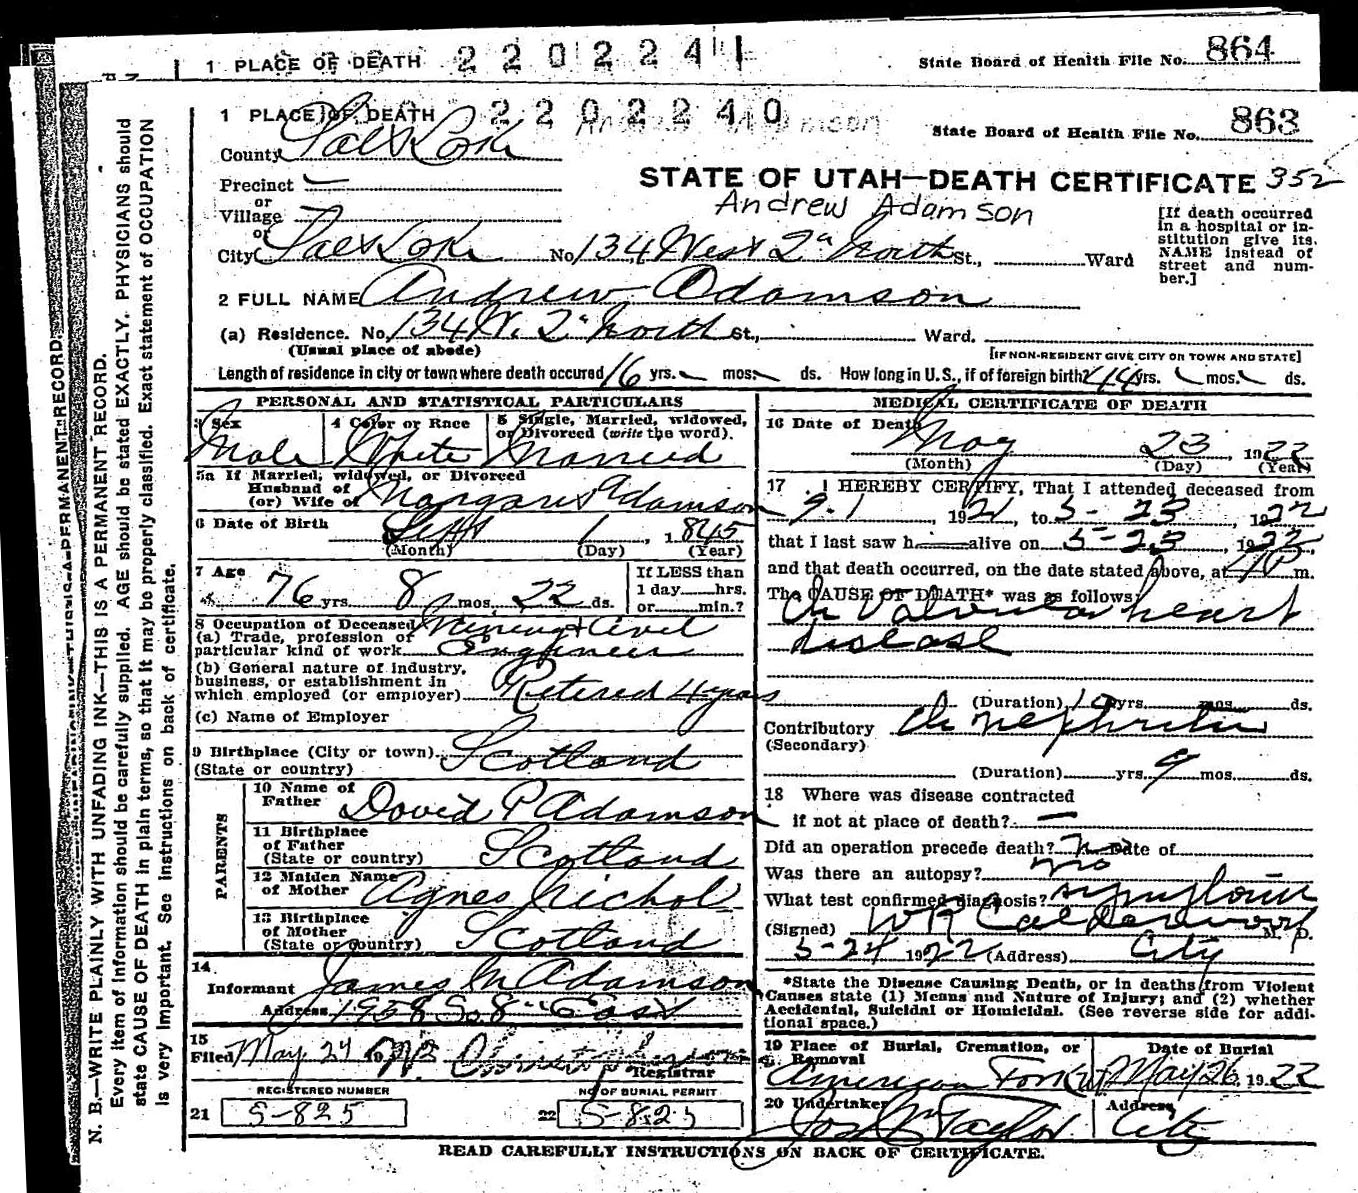 1 PLACE OF DEATH 2 2 0 2 2 4 1 State Board of Health File No. 864
1 PLACE OF DEATH 2 2 0 2 2 4 0 State Board of Health File No. 863
Andrew Adamson
County Salt Lake
STATE OF UTAH—DEATH CERTIFICATE 352
Precinct —
or
Village
or
Andrew Adamson
[If death occurred in a hospital or institution give its NAME instead of street and number.]
City Salt Lake No. 134 West 2nd North St., Ward
2 FULL NAME Andrew Adamson
(a) Residence. No. 134 W. 2nd North St., Ward.
(Usual place of abode) [IF NON-RESIDENT GIVE CITY OR TOWN AND STATE]
Length of residence in city or town where death occured 16 yrs. mos. ds. How long in U.S., if of foreign birth? 44 yrs. mos. ds.
PERSONAL AND STATISTICAL PARTICULARS
3 Sex 4 Color or Race 5 Single, Married, widowed, or Divorced (write the word).
Male White Married
5a If Married, widowed, or Divorced
Husband of
(or) Wife of Margaret Adamson
6 Date of Birth Sept 1, 1845
(Month) (Day) (Year)
7 Age 76 yrs. 8 mos. 22 ds. If LESS than 1 day hrs. or min.?
8 Occupation of Deceased
(a) Trade, profession or particular kind of work Mining & Civil Engineer
(b) General nature of industry, business, or establishment in which employed (or employer) Retired 4 years
(c) Name of Employer
9 Birthplace (City or town) Scotland
(State or country)
PARENTS
10 Name of Father David P Adamson
11 Birthplace of Father (State or country) Scotland
12 Maiden Name of Mother Agnes Nichol
13 Birthplace of Mother (State or country) Scotland
14
Informant James M Adamson
Address 1958 So. 8th East
15
Filed May 24 1922
Registrar
REGISTERED NUMBER NO OF BURIAL PERMIT
21 S-825 22 S-825
MEDICAL CERTIFICATE OF DEATH
16 Date of Death May 23 1922
(Month) (Day) (Year)
17 I HEREBY CERTIFY, That I attended deceased from
9-1, 1921, to 5-23, 1922
that I last saw h alive on 5-23, 1922,
and that death occurred, on the date stated above, at 4 P m.
The CAUSE OF DEATH* was as follows:
Ch Valvular heart
disease
(Duration) yrs. mos. ds.
Contributory Ch nephritis
(Secondary)
(Duration) yrs. 9 mos. ds.
18 Where was disease contracted
if not at place of death? —
Did an operation precede death? no Date of
Was there an autopsy? no
What test confirmed diagnosis? symptoms
(Signed) W R Calderwood M. D.
5-24 1922 (Address) City
*State the Disease Causing Death, or in deaths from Violent
Causes state (1) Means and Nature of Injury; and (2) whether
Accidental, Suicidal or Homicidal. (See reverse side for addi-
tional space.)
19 Place of Burial, Cremation, or Removal Date of Burial
American Fork Ut May 26, 1922
20 Undertaker Address
Jos Wm Taylor City
READ CAREFULLY INSTRUCTIONS ON BACK OF CERTIFICATE.
N. B.—WRITE PLAINLY WITH UNFADING INK—THIS IS A PERMANENT RECORD.
Every item of information should be carefully supplied. AGE should be stated EXACTLY. PHYSICIANS should
state CAUSE OF DEATH in plain terms, so that it may be properly classified. Exact statement of OCCUPATION
is very important. See instructions on back of certificate.